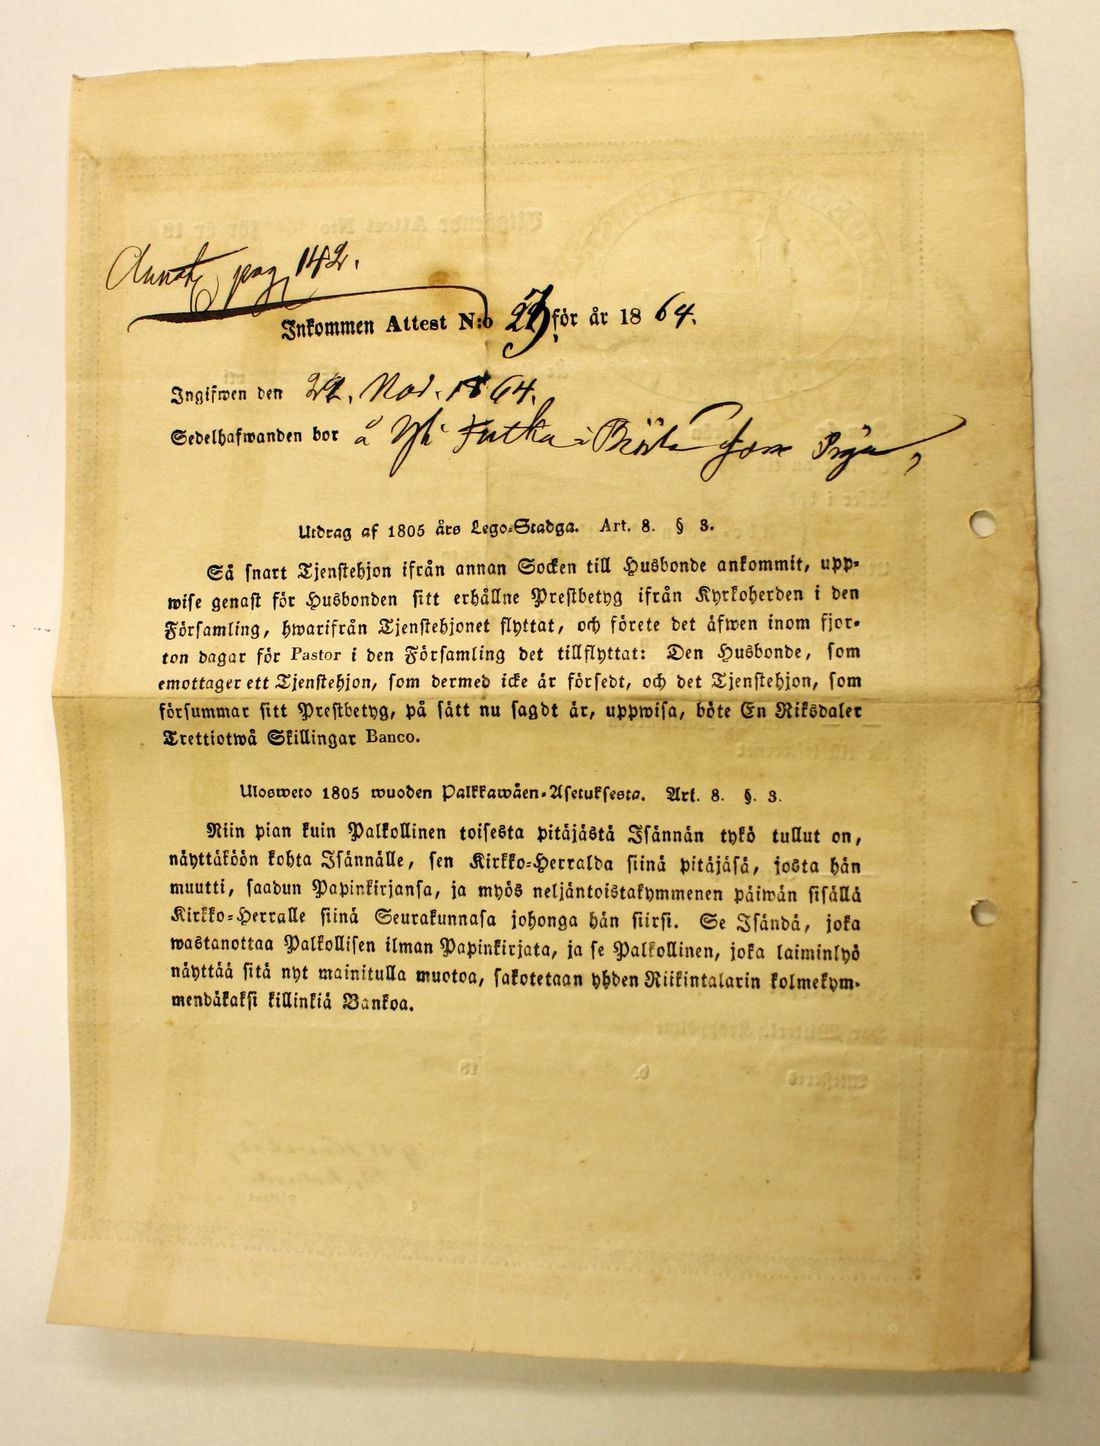 Annot pag 142.
Inkommen Attest N:o för år 1864.
Ingifwen den 22. Nov. 1864.
Sedelhafwanden bor å Yli som Piga,
Utdrag af 1805 års Lego-Stadga. Art. 8. § 3.
Så snart Tjenstehjon ifrån annan Socken till Husbonde ankommit, upp-
wise genast för Husbonden sitt erhållne Prestbetyg ifrån Kyrkoherden i den
Församling, hwarifrån Tjenstehjonet flyttat, och förete det äfwen inom fjor-
ton dagar för Pastor i den Församling det tillflyttat: Den Husbonde, som
emottager ett Tjenstehjon, som dermed icke är försedt, och det Tjenstehjon, som
försummar sitt Prestbetyg, på sätt nu sagdt är, uppwisa, böte En Riksdaler
Trettiotwå Skillingar Banco.
Ulosweto 1805 wuoden Palkkawäen-Asetuksesta. Art. 8. §. 3.
Niin pian kuin Palkollinen toisesta pitäjästä Isännän tykö tullut on,
näyttäköön kohta Isännälle, sen Kirkko-Herralda siinä pitäjäsä, josta hän
muutti, saadun Papinkirjansa, ja myös neljäntoistakymmenen päiwän sisällä
Kirkko-Herralle siinä Seurakunnasa johonga hän siirsi. Se Isändä, joka
wastanottaa Palkollisen ilman Papinkirjata, ja se Palkollinen, joka laiminlyö
näyttää sitä nyt mainitulla muotoa, sakotetaan yhden Riikintalarin kolmekym-
mendäkaksi killinkiä Bankoa.